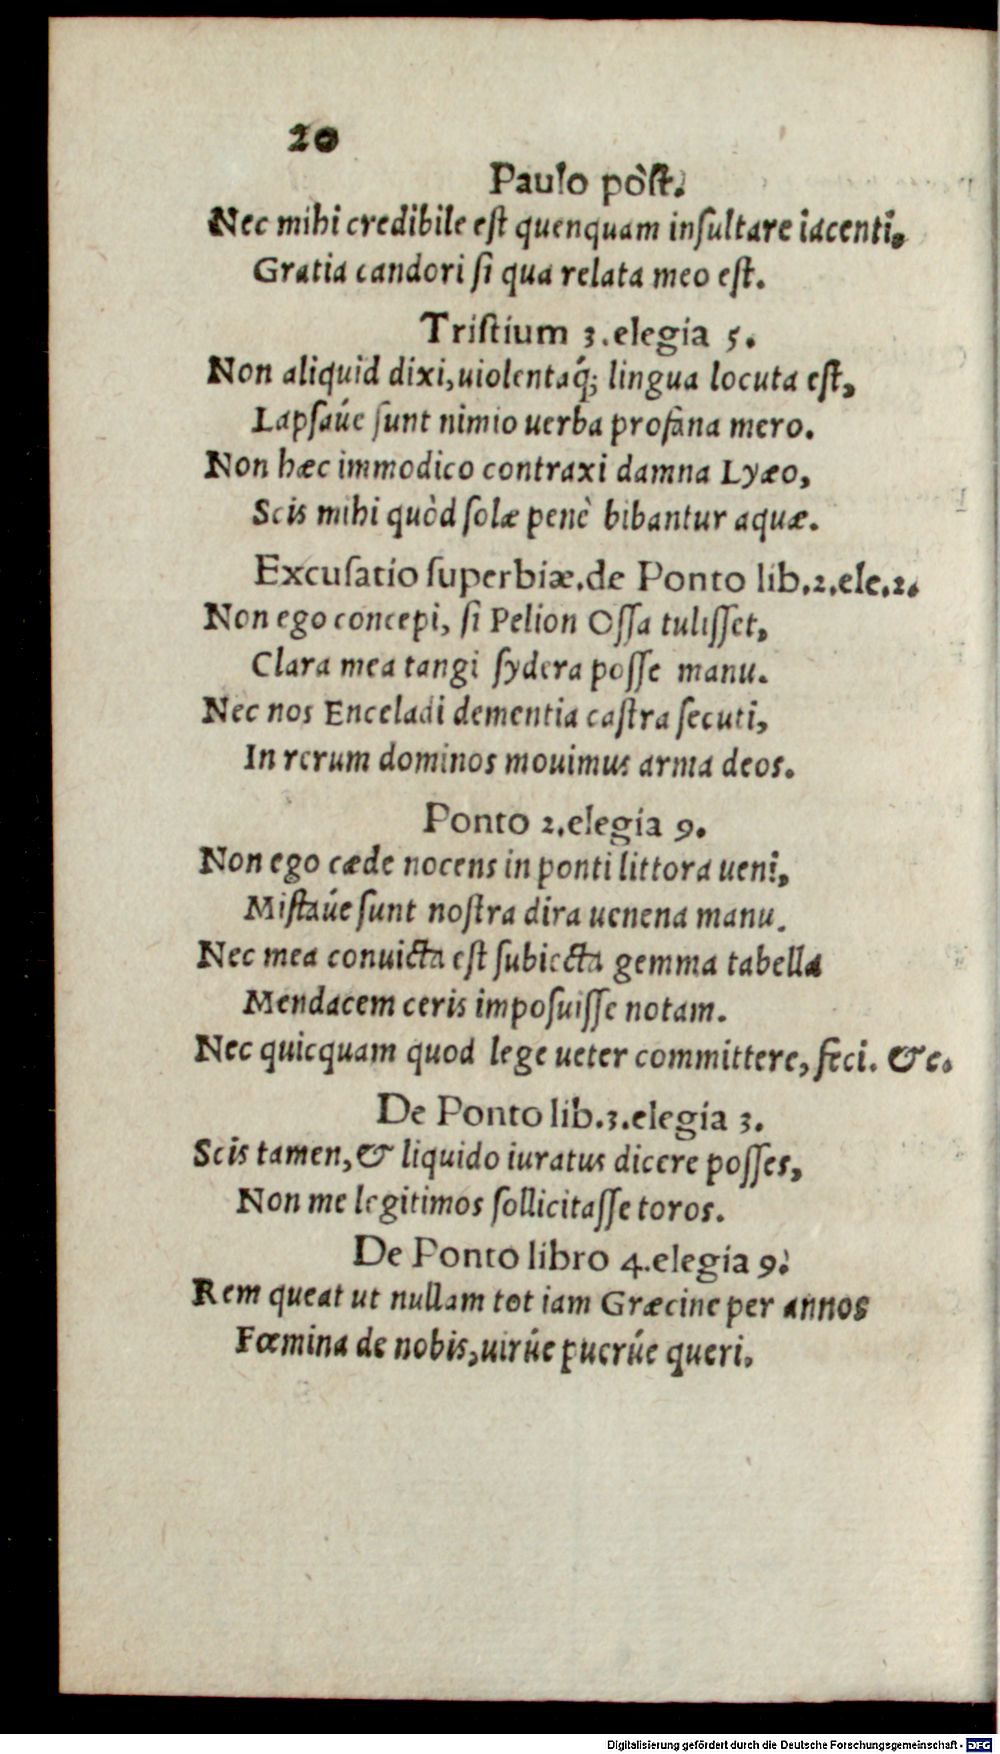 20
Paulo pòſt.
Nec mihi credibile eſt quenquam inſultare iacenti,
Gratia candori ſi qua relata meo eſt.
Triſtium 3. elegia 5.
Non aliquid dixi, uiolentaq́; lingua locuta eſt,
Lapſaúe ſunt nimio uerba profana mero.
Non hæc immodico contraxi damna Lyæo,
Scis mihi quòd ſolæ penè bibantur aquæ.
Excuſatio ſuperbiæ. de Ponto lib. 2. ele. 2.
Non ego concepi, ſi Pelion Oſſa tuliſſet,
Clara mea tangi ſydera poſſe manu.
Nec nos Enceladi dementia caſtra ſecuti,
In rerum dominos mouimus arma deos.
Ponto 2. elegia 9.
Non ego cæde nocens in ponti littora ueni,
Miſtaúe ſunt noſtra dira uenena manu.
Nec mea conuicta eſt ſubiecta gemma tabella
Mendacem ceris impoſuiſſe notam.
Nec quicquam quod lege ueter committere, feci. &c.
De Ponto lib. 3. elegia 3.
Scis tamen, & liquido iuratus dicere poſſes,
Non me legitimos ſollicitaſſe toros.
De Ponto libro 4. elegia 9.
Rem queat ut nullam tot iam Græcine per annos
Fœmina de nobis, uirúe puerúe queri.
Digitalisierung gefördert durch die Deutsche Forschungsgemeinschaft - DFG